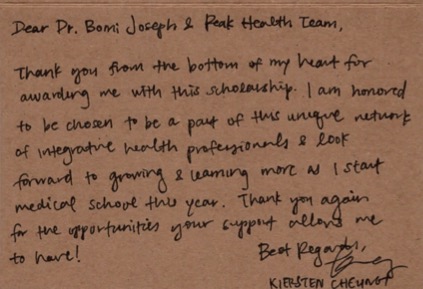 Dear Dr. Bomi Joseph & Peak Health Team,
Thank you from the bottom of my heart for
awarding me with this scholarship. I am honored
to be chosen to be a part of this unique network
of integrative health professionals & look
forward to growing & learning more as I start
medical school this year. Thank you again
for the opportunities your support allows me
to have!
Best Regards,
KIERSTEN CHEUNG